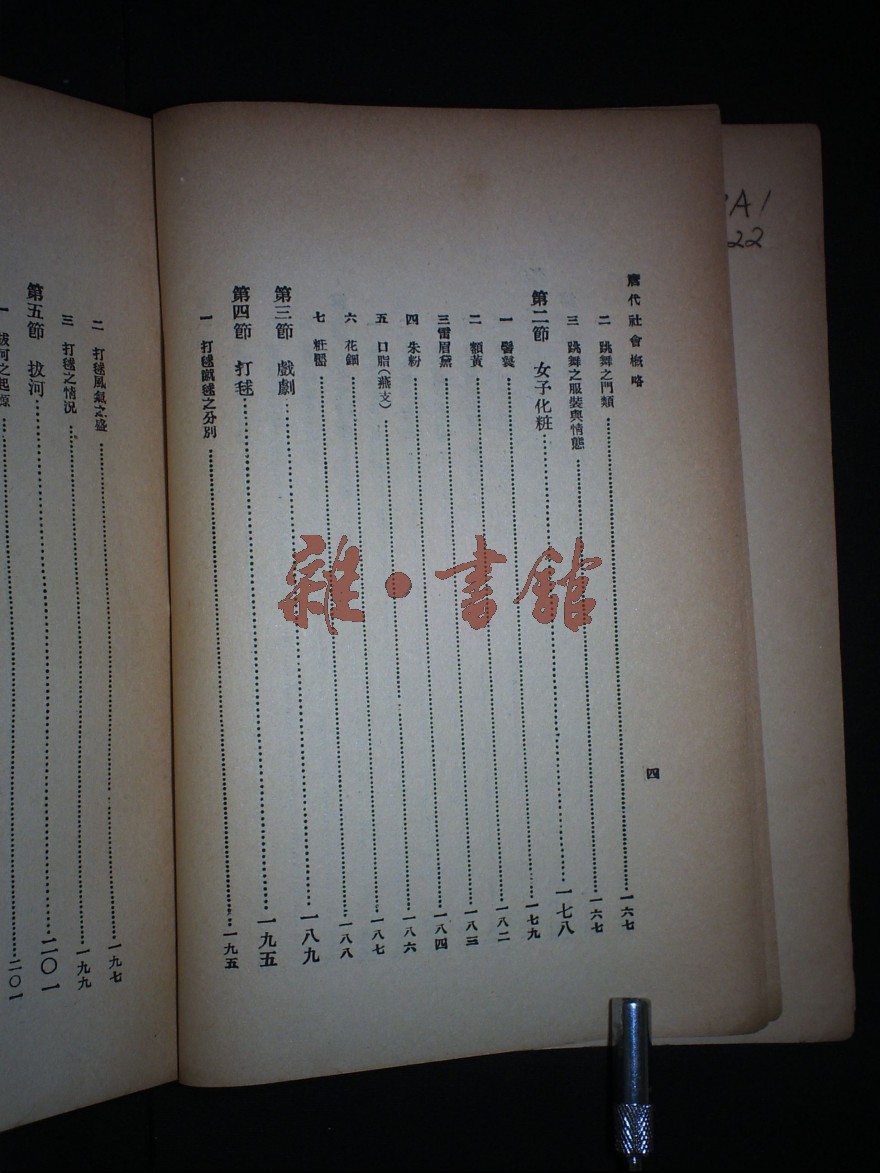 唐代社會概略 四
二 跳舞之門類……一六七
三 跳舞之服裝與情態……一六七
第二節 女子化粧……一七八
一 髻鬟……一七九
二 額黃……一八二
三 畫眉黛……一八三
四 朱粉……一八四
五 口脂(燕支)……一八六
六 花鈿……一八七
七 粧靨……一八八
第三節 戲劇……一八九
第四節 打毬……一九五
一 打毬蹴毬之分別……一九五
二 打毬風氣之盛……一九七
三 打毬之情況……一九九
第五節 拔河……二〇一
一 拔河之起源……二〇一
A1
22
雜·書館